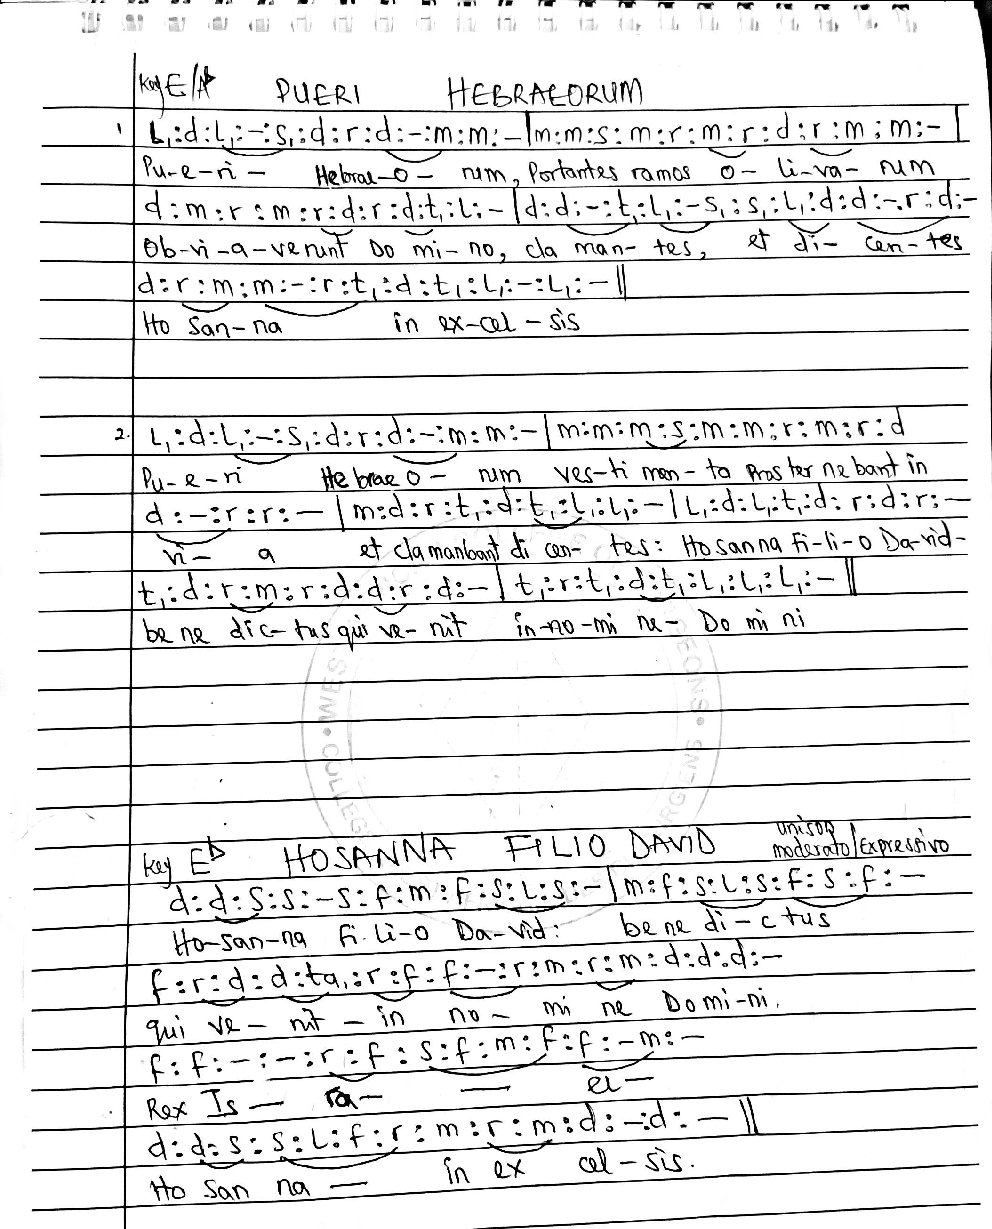 Key E/Ab PUERI HEBRAEORUM
1 L,:d:L,:-:S,:d:r:d:-:m:m:-|m:m:s:m:r:m:r:d:r:m:m:-|
Pu-e-ri- Hebrae-O- num, Portantes ramos o- li-va- num
d:m:r:m:r:d:r:d:t,:L:-|d:d:-:t,:L,:-S,:S,:L,:d:d:-.r:d:-
Ob-vi-a-verunt Do mi-no, cla man- tes, et di- cen-tes
d:r:m:m:-:r:t,:d:t,:L,:-:L,:-||
Ho San-na in ex-cel-sis
2. L,:d:L,:-:S,:d:r:d:-:m:m:-|m:m:m:s:m:m:r:m:r:d
Pu-e-ri Hebrae O- num ves-ti men-ta Pros ter ne bant in
d:-:r:r:-|m:d:r:t,:d:t,:L,:L,:-|L,:d:L,:t,:d:r:d:r:-
vi- a et clamanbant di cen- tes: Hosanna Fi-li-o Da-vid-
t,:d:r:m:r:d:d:r:d:-|t,:r:t,:d:t,:L,:L,:L,:-||
be ne dic-tus qui ve- nit in-no-mi ne- Do mi ni
Key Eb HOSANNA FILIO DAVID unison
moderato/Expressivo
d:d:S:S:-S:f:m:f:S:L:S:-|m:f:S:L:S:f:S:f:-
Ho-san-na fi.li-o Da-vid: be ne di-ctus
f:r:d:d:ta,:r:f:f:-:r:m:r:m:d:d:d:-
qui ve- nit - in no- mi ne Domi-ni.
f:f:-:-:r:f:S:f:m:f:f:-m:-
Rex Is- ra- - el-
d:d:S:S:L:f:r:m:r:m:d:-:d:-||
Ho San na- in ex cel-sis.